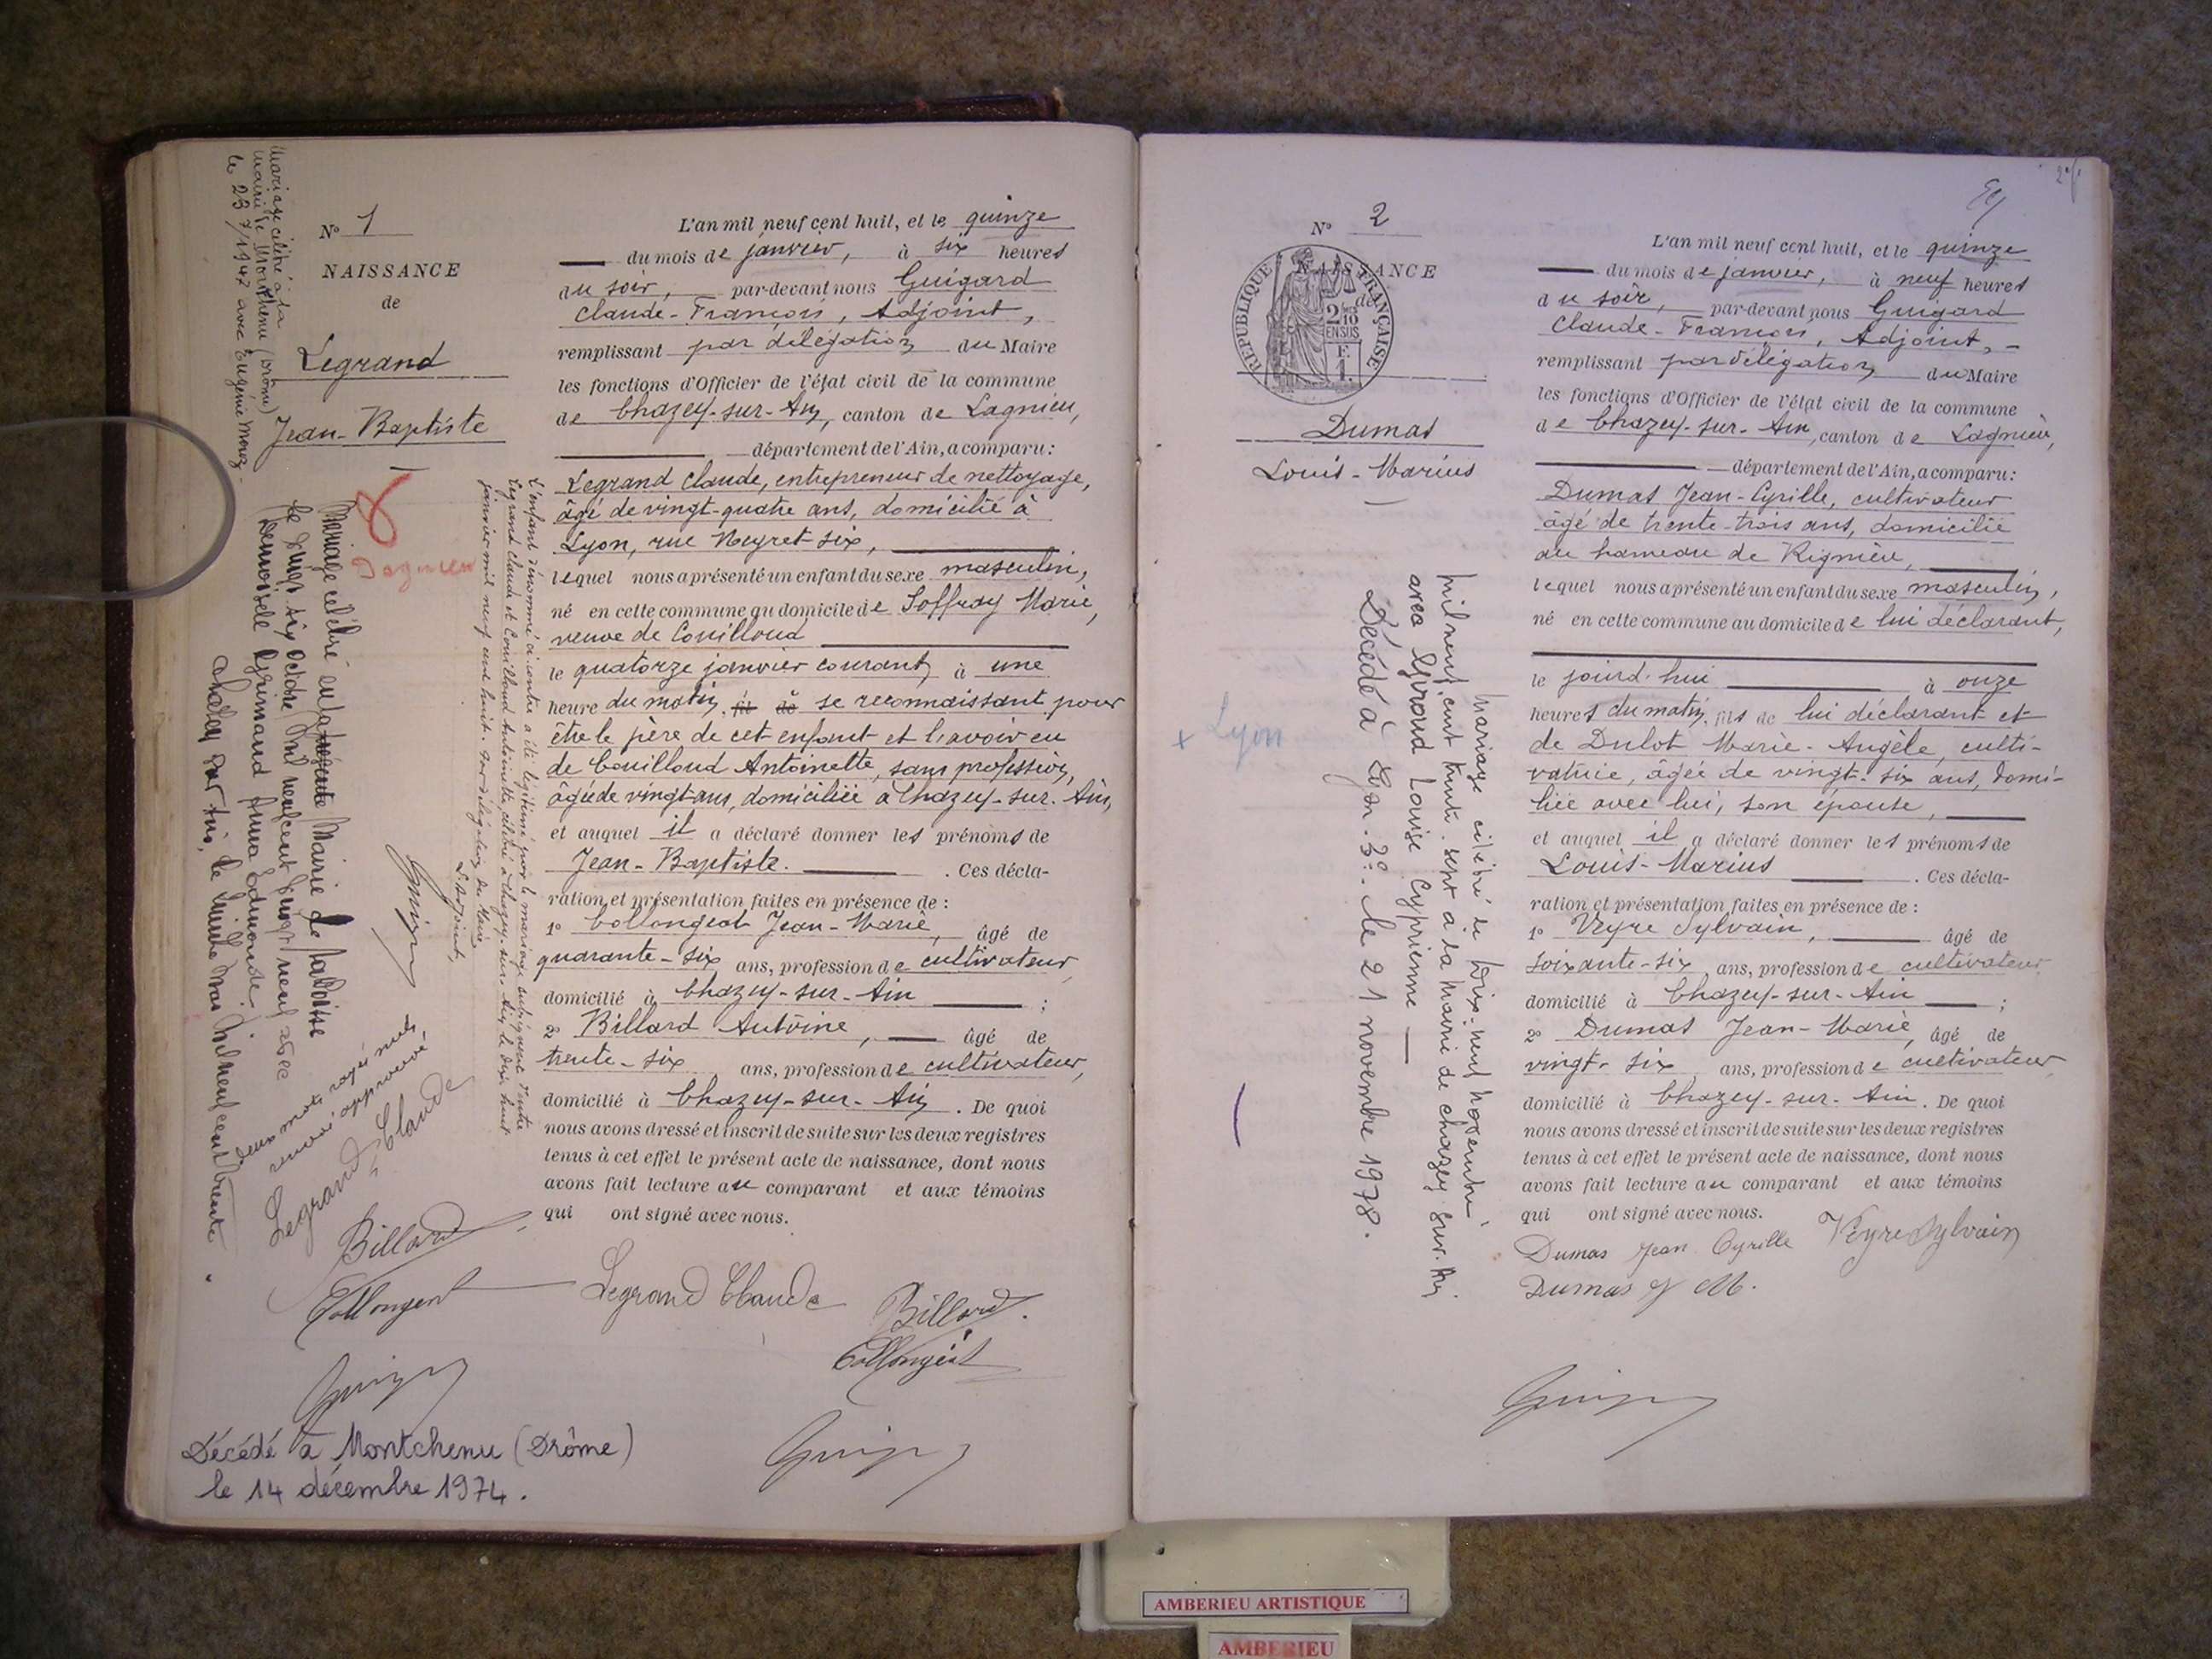 N° 1
NAISSANCE
de
Legrand
Jean-Baptiste
L'an mil neuf cent huit, et le quinze
du mois de janvier, à six heures
du soir, par-devant nous Guigard
Claude-François, Adjoint,
remplissant par délégation du Maire
les fonctions d'Officier de l'état civil de la commune
de Chazey-sur-Ain, canton de Lagnieu,
département de l'Ain, a comparu :
Legrand Claude, entrepreneur de nettoyage,
âgé de vingt-quatre ans, domicilié à
Lyon, rue Neyret six,
lequel nous a présenté un enfant du sexe masculin,
né en cette commune au domicile de Joffray Marie,
veuve de Couilloud
le quatorze janvier courant, à une
heure du matin, fil de se reconnaissant pour
être le père de cet enfant et l'avoir eu
de Couilloud Antoinette, sans profession,
âgée de vingt ans, domiciliée à Chazey-sur-Ain,
et auquel il a déclaré donner les prénoms de
Jean-Baptiste. . Ces décla-
ration et présentation faites en présence de :
1° Collongeat Jean-Marie, âgé de
quarante-six ans, profession de cultivateur
domicilié à Chazey-sur-Ain ;
2° Billard Antoine, âgé de
trente-six ans, profession de cultivateur,
domicilié à Chazey-sur-Ain. De quoi
nous avons dressé et inscrit de suite sur les deux registres
tenus à cet effet le présent acte de naissance, dont nous
avons fait lecture au comparant et aux témoins
qui ont signé avec nous.
Legrand Claude Billard.
Collongeat
Mariage célébré à la
mairie de Montchenu (Drôme)
le 23/7/1947 avec Eugénie
Mariage célébré en la Mairie de
le vingt six octobre mil neuf cent vingt neuf avec
Demoiselle Grimaud Anna Edmonde.
Chazey sur Ain, le mil neuf cent trente.
L'enfant dénommé ci-contre a été légitimé par le mariage subséquent d'entre
Legrand Claude et Couilloud Antoinette, célébré à Chazey-sur-Ain le dix huit
janvier mil neuf cent huit. Par délégation du Maire,
L'Adjoint,
Dagneux
Deux mots rayés nuls,
renvoi approuvé
Legrand Claude
Billard
Collongeat
Décédé à Montchenu (Drôme)
le 14 décembre 1974.
N° 2
NAISSANCE
de
REPUBLIQUE FRANÇAISE
2/10
EN SUS
Dumas
Louis-Marius
L'an mil neuf cent huit, et le quinze
du mois de janvier, à neuf heures
du soir, par-devant nous Guigard
Claude-François, Adjoint,
remplissant par délégation du Maire
les fonctions d'Officier de l'état civil de la commune
de Chazey-sur-Ain, canton de Lagnieu,
département de l'Ain, a comparu :
Dumas Jean-Cyrille, cultivateur
âgé de trente-trois ans, domicilié
au hameau de Rignieu,
lequel nous a présenté un enfant du sexe masculin,
né en cette commune au domicile de lui déclarant,
le jourd'hui à onze
heures du matin, fils de lui déclarant et
de Dulot Marie-Angèle, culti-
vatrice, âgée de vingt-six ans, domi-
liée avec lui, son épouse,
et auquel il a déclaré donner les prénoms de
Louis-Marius . Ces décla-
ration et présentation faites en présence de :
1° Veyre Sylvain, âgé de
soixante-six ans, profession de cultivateur
domicilié à Chazey-sur-Ain ;
2° Dumas Jean-Marie, âgé de
vingt-six ans, profession de cultivateur
domicilié à Chazey-sur-Ain. De quoi
nous avons dressé et inscrit de suite sur les deux registres
tenus à cet effet le présent acte de naissance, dont nous
avons fait lecture au comparant et aux témoins
qui ont signé avec nous.
Dumas Jean Cyrille Veyre Sylvain
Dumas J M.
Mariage célébré le dix-neuf novembre
mil neuf cent trente sept à la mairie de Chazey sur Ain
avec Giroud Louise Cyprienne
Décédé à Lyon 3e. le 21 novembre 1978.
x Lyon
AMBERIEU ARTISTIQUE
AMBERIEU